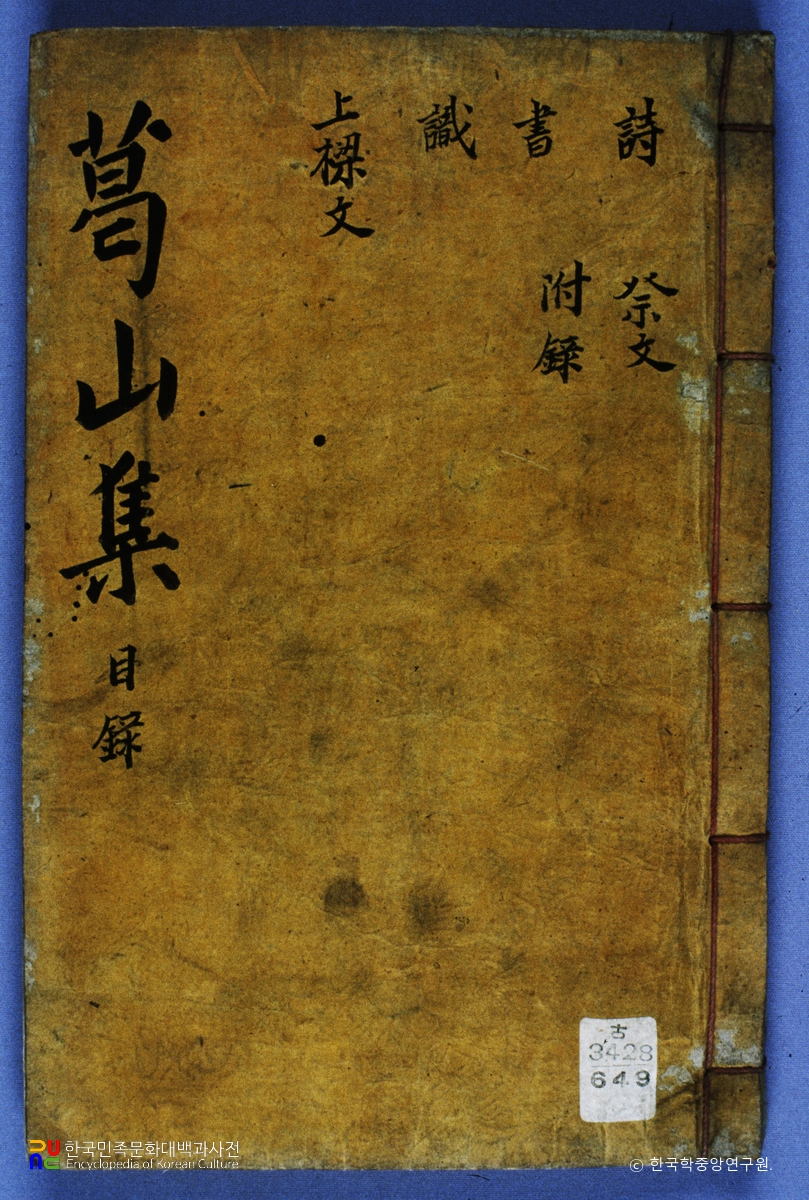 詩
祭文
書
附錄
識
上樑文
葛山集
目錄
古
3428
649
한국민족문화대백과사전
Encyclopedia of Korean Culture
© 한국학중앙연구원.